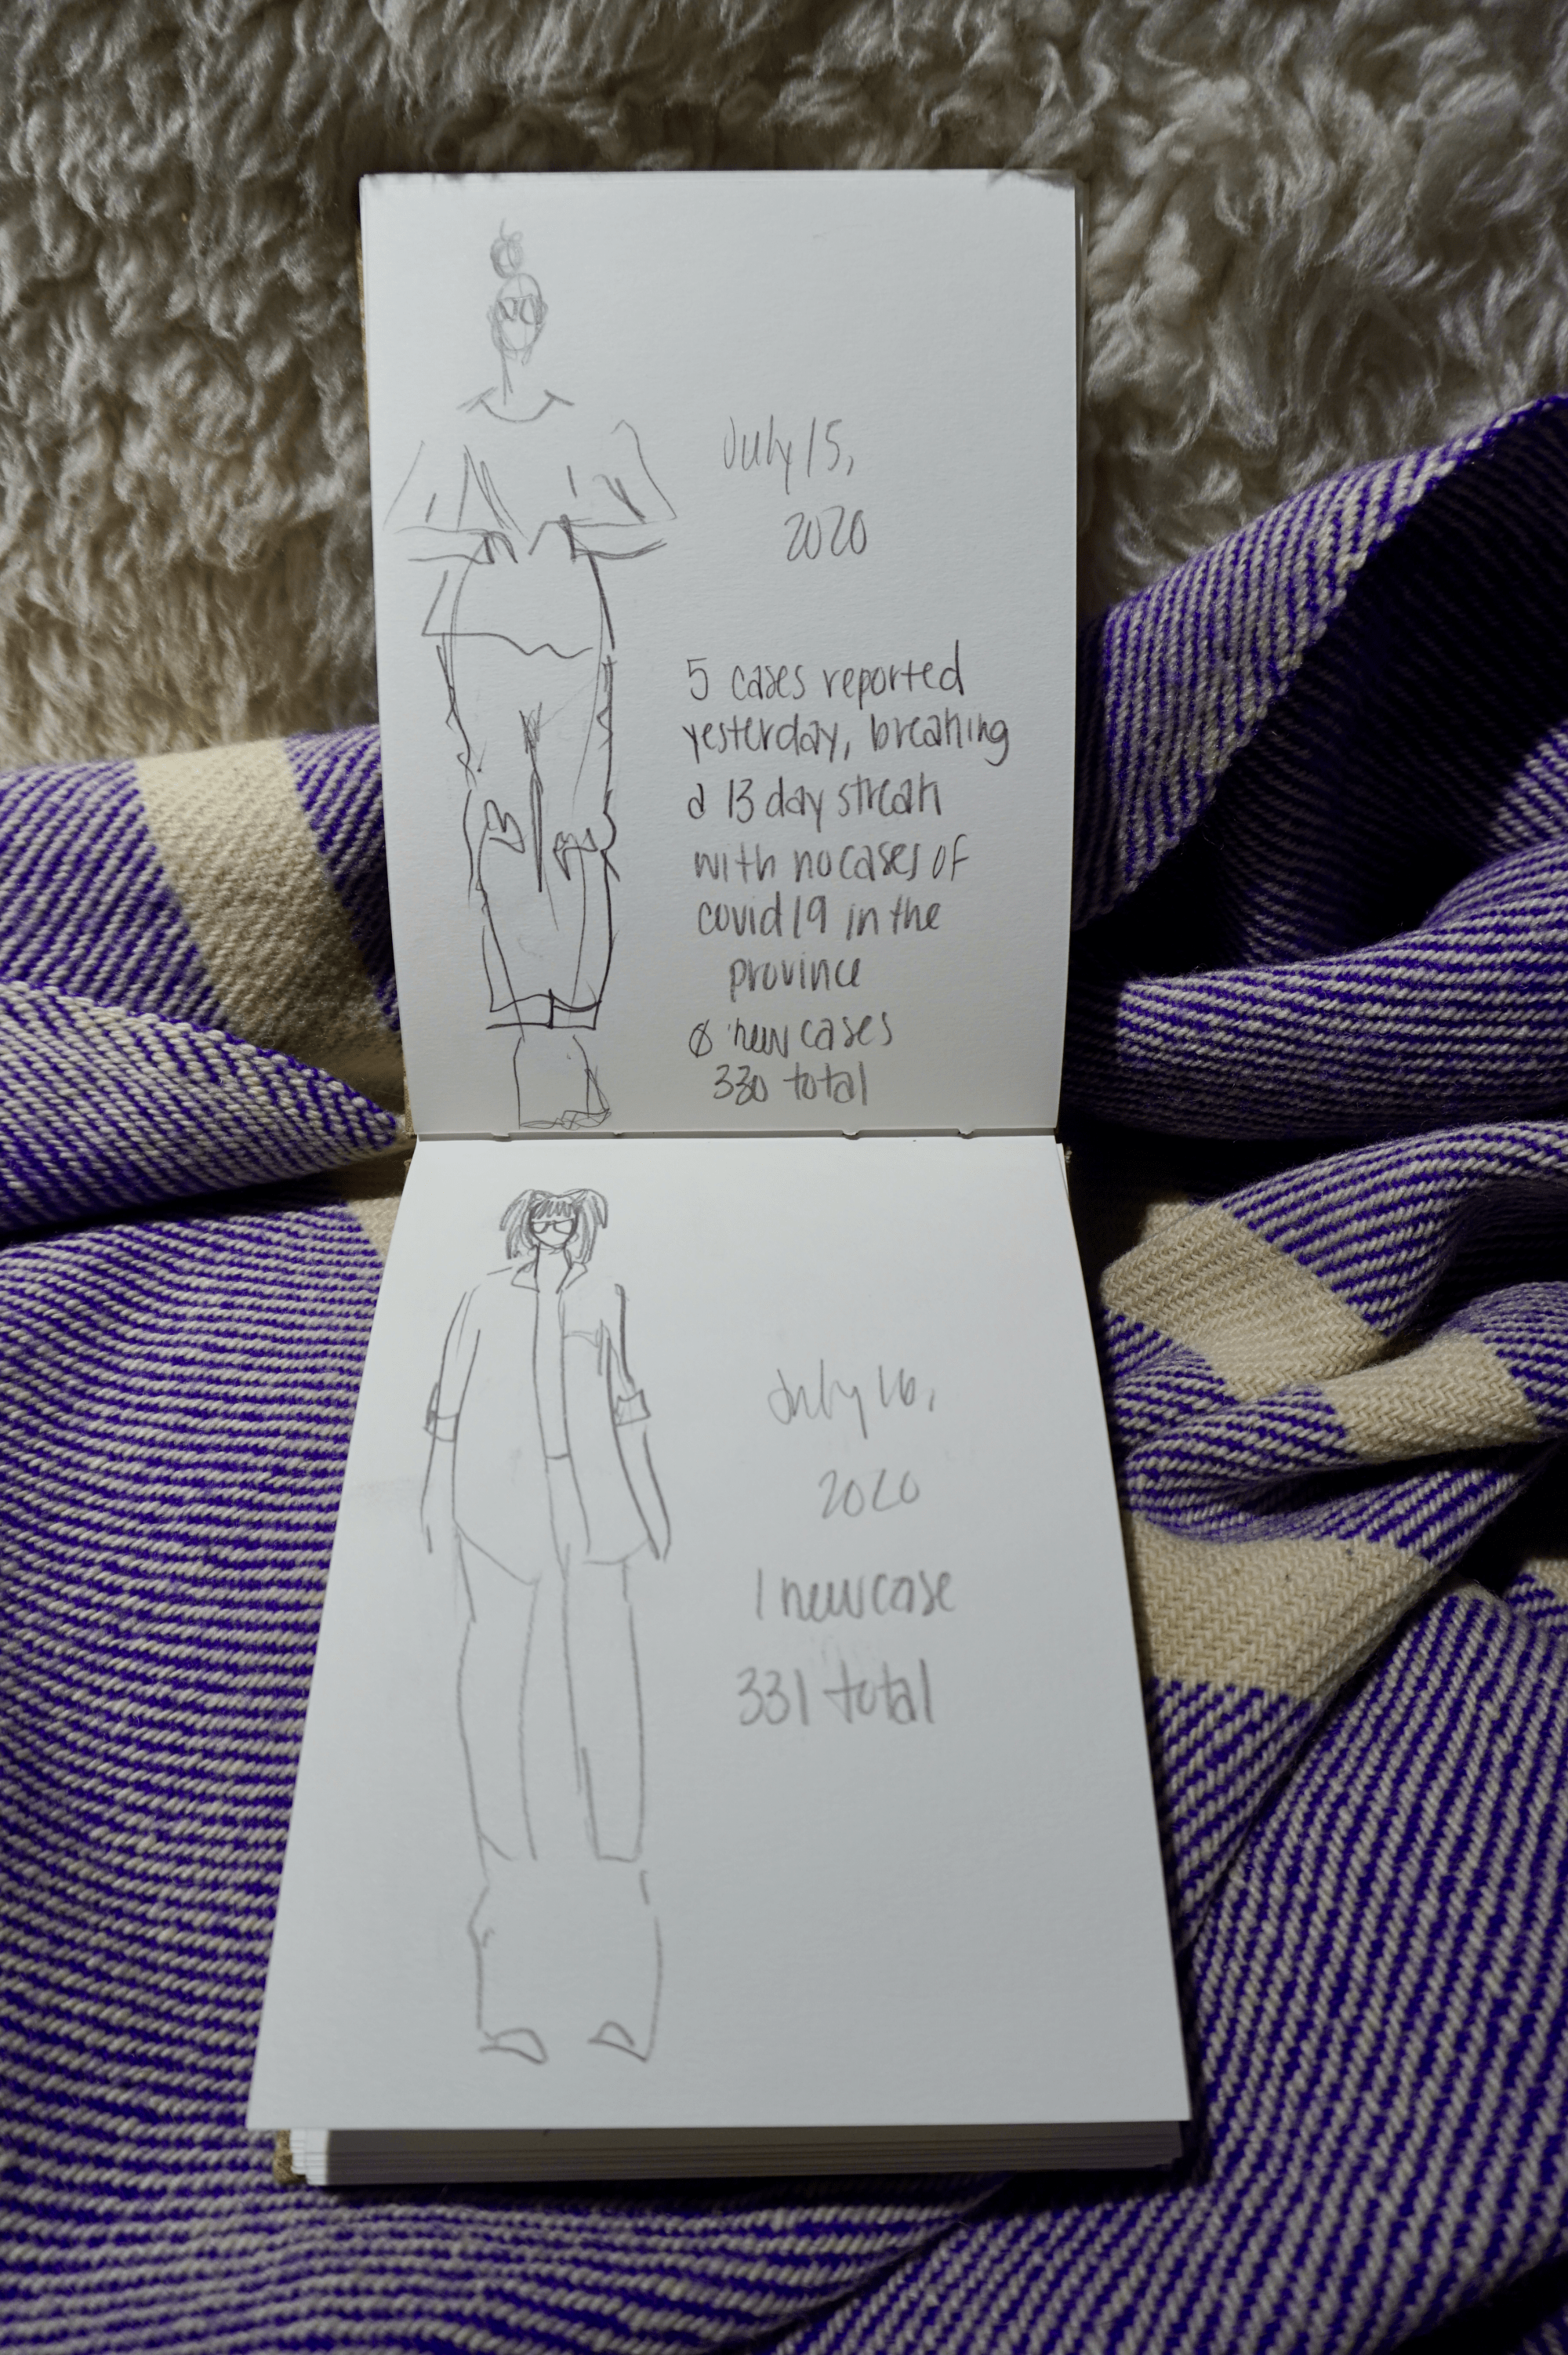 July 15,
2020
5 cases reported
yesterday, breaking
a 13 day streak
with no cases of
covid 19 in the
province
0 new cases
330 total
July 16,
2020
1 new case
331 total